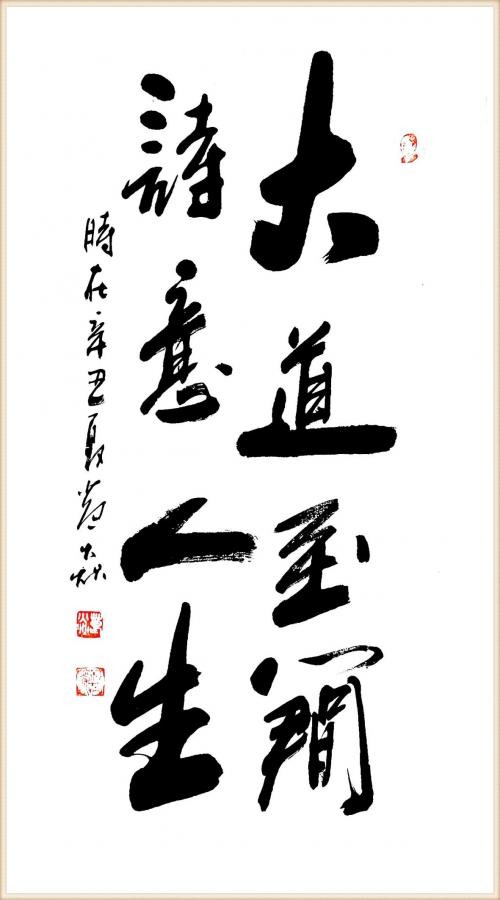 大道至簡
詩意人生
時在辛丑夏